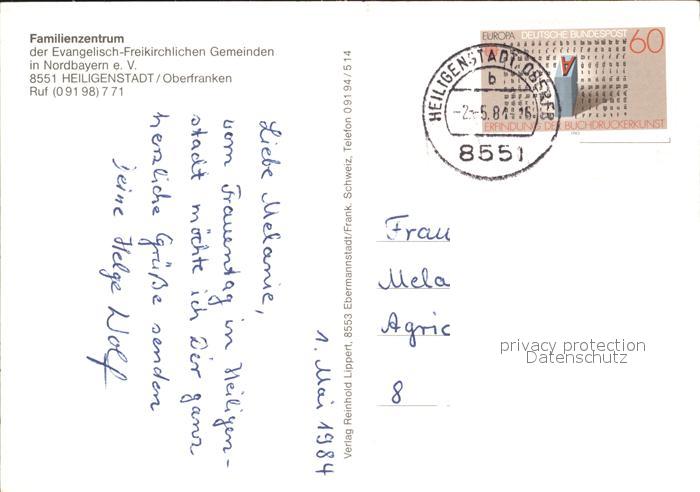 Familienzentrum
der Evangelisch-Freikirchlichen Gemeinden
in Nordbayern e. V.
8551 HEILIGENSTADT / Oberfranken
Ruf (0 91 98) 7 71
1. Mai 1984
Liebe Melanie,
vom Frauentag in Heiligen-
stadt möchte ich Dir ganz
herzliche Grüße senden
Deine Helga Wolf
Verlag Reinhold Lippert, 8553 Ebermannstadt/Frank. Schweiz, Telefon 0 91 94 / 5 14
EUROPA DEUTSCHE BUNDESPOST 60
A
ERFINDUNG DER BUCHDRUCKERKUNST
HEILIGENSTADT, OBERFR
b
-2.-5.84-16
8551
Frau
Mela
Agric
8
privacy protection
Datenschutz